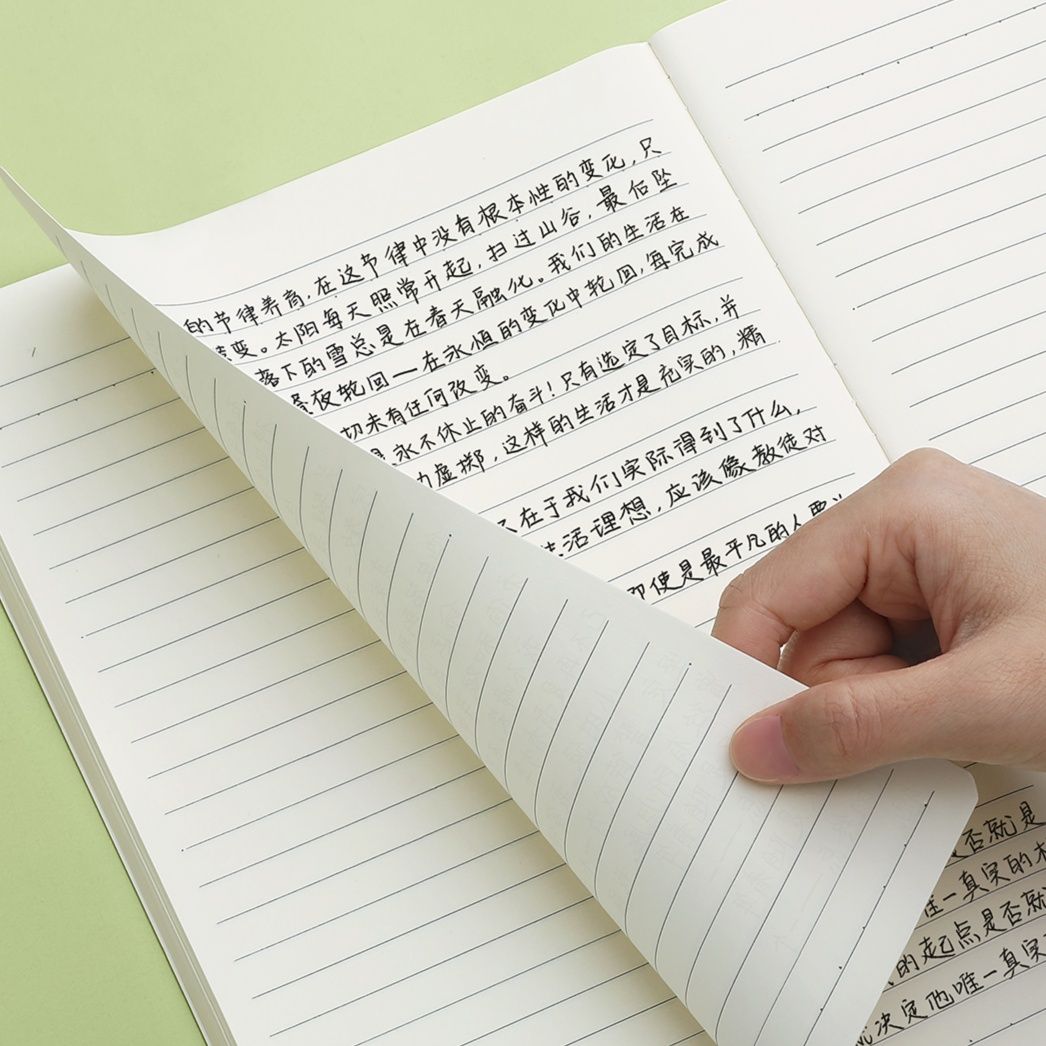 的节律养育,在这节律中没有根本性的变化,只
变。太阳每天照常升起,扫过山谷,最后坠
落下的雪总是在春天融化。我们的生活在
夜轮回—在永恒的变化中轮回,每完成
切未有任何改变。
永不休止的奋斗!只有选定了目标,并
虚掷,这样的生活才是充实的,精
在于我们实际得到了什么,
活理想,应该像教徒对
即使是最平凡的人
否就是
唯一真实的
的起点是否就
决定他唯一真实